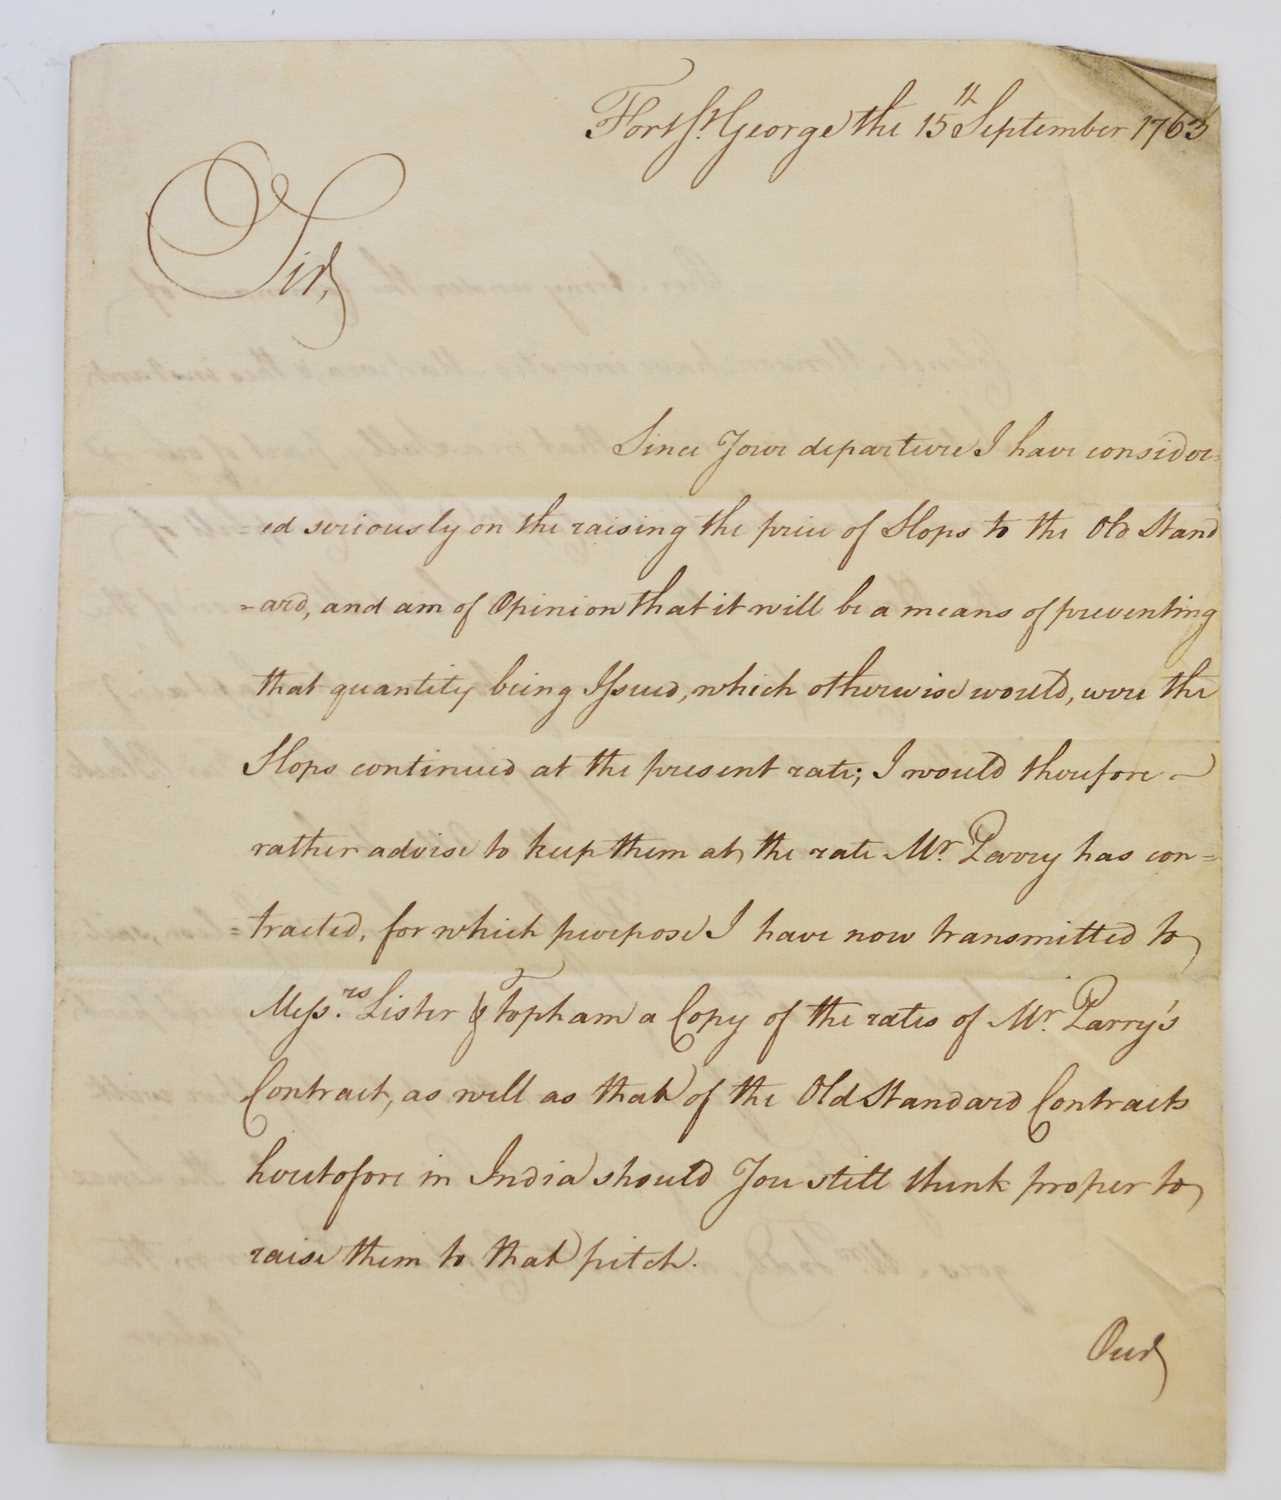 Fort St. George the 15th September 1763
Sir,
Since Your departure I have consider=
=ed seriously on the raising the price of Slops to the Old Stand
=ard, and am of Opinion that it will be a means of preventing
that quantity being Issued, which otherwise would, were the
Slops continued at the present rate; I would therefore
rather advise to keep them at the rate Mr. Parry has con=
=tracted, for which purpose I have now transmitted to
Messrs. Lister & Topham a Copy of the rates of Mr. Parry's
Contract, as well as that of the Old Standard Contracts
heretofore in India should You still think proper to
raise them to that pitch.
Our